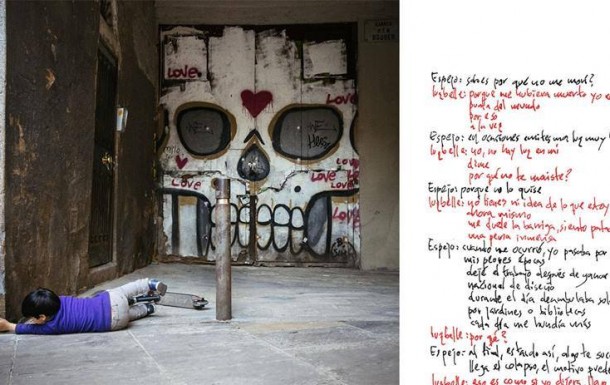 Love
Love
Love
Love
Love
Love
Espejo: sabes por qué no me morí?
luzbelle: porque me hubiera muerto yo
punta del mundo
por eso
a la vez
Espejo: en ocasiones emites una luz muy
luzbelle: yo, no hay luz en mí
dime
por qué no te mataste?
Espejo: porque no lo quise
luzbelle: yo tienes ni idea de lo que estoy
ahora mismo
me duele la barriga, siento
una pena inmensa
Espejo: cuando me ocurrió, yo pasaba por
mis peores épocas
dejé el trabajo después de ganar
nacional de diseño
durante el día deambulaba
por jardines o bibliotecas
cada día me hundía más
luzbelle: por qué?
Espejo: al final, estando así, algo te
llega el colapso, el motivo puede
luzbelle: eso es como si yo dijera